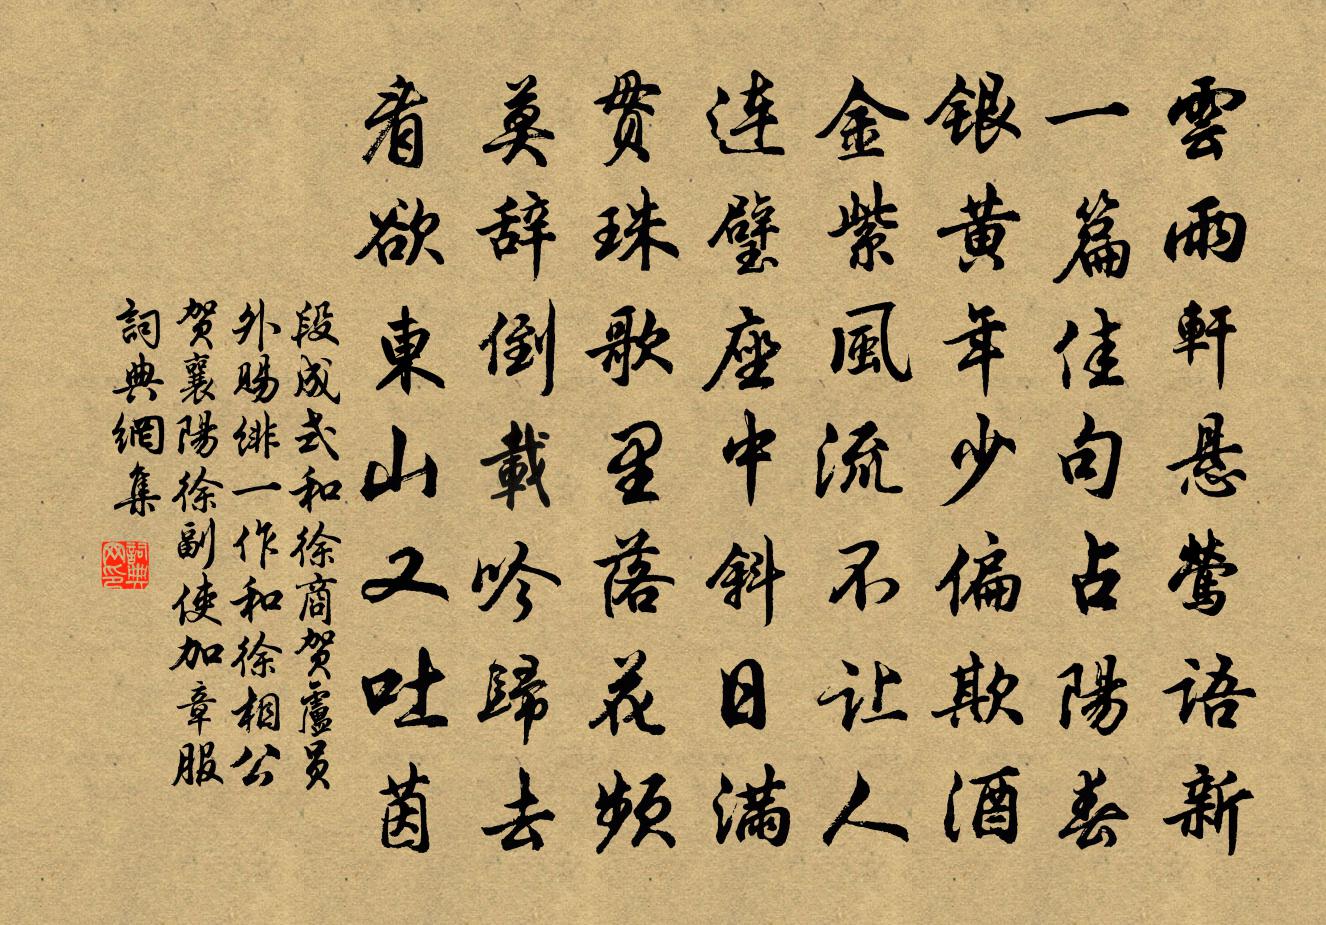 雲雨軒悬鶯語新
一篇佳句占陽春
銀黄年少偏欺酒
金紫風流不让人
连璧座中斜日满
贯珠歌里落花频
莫辞倒載吟歸去
看欲東山又吐茵
段成式和徐商贺盧員
外賜緋一作和徐相公
贺襄陽徐副使加章服
詞典網集
詞典网印